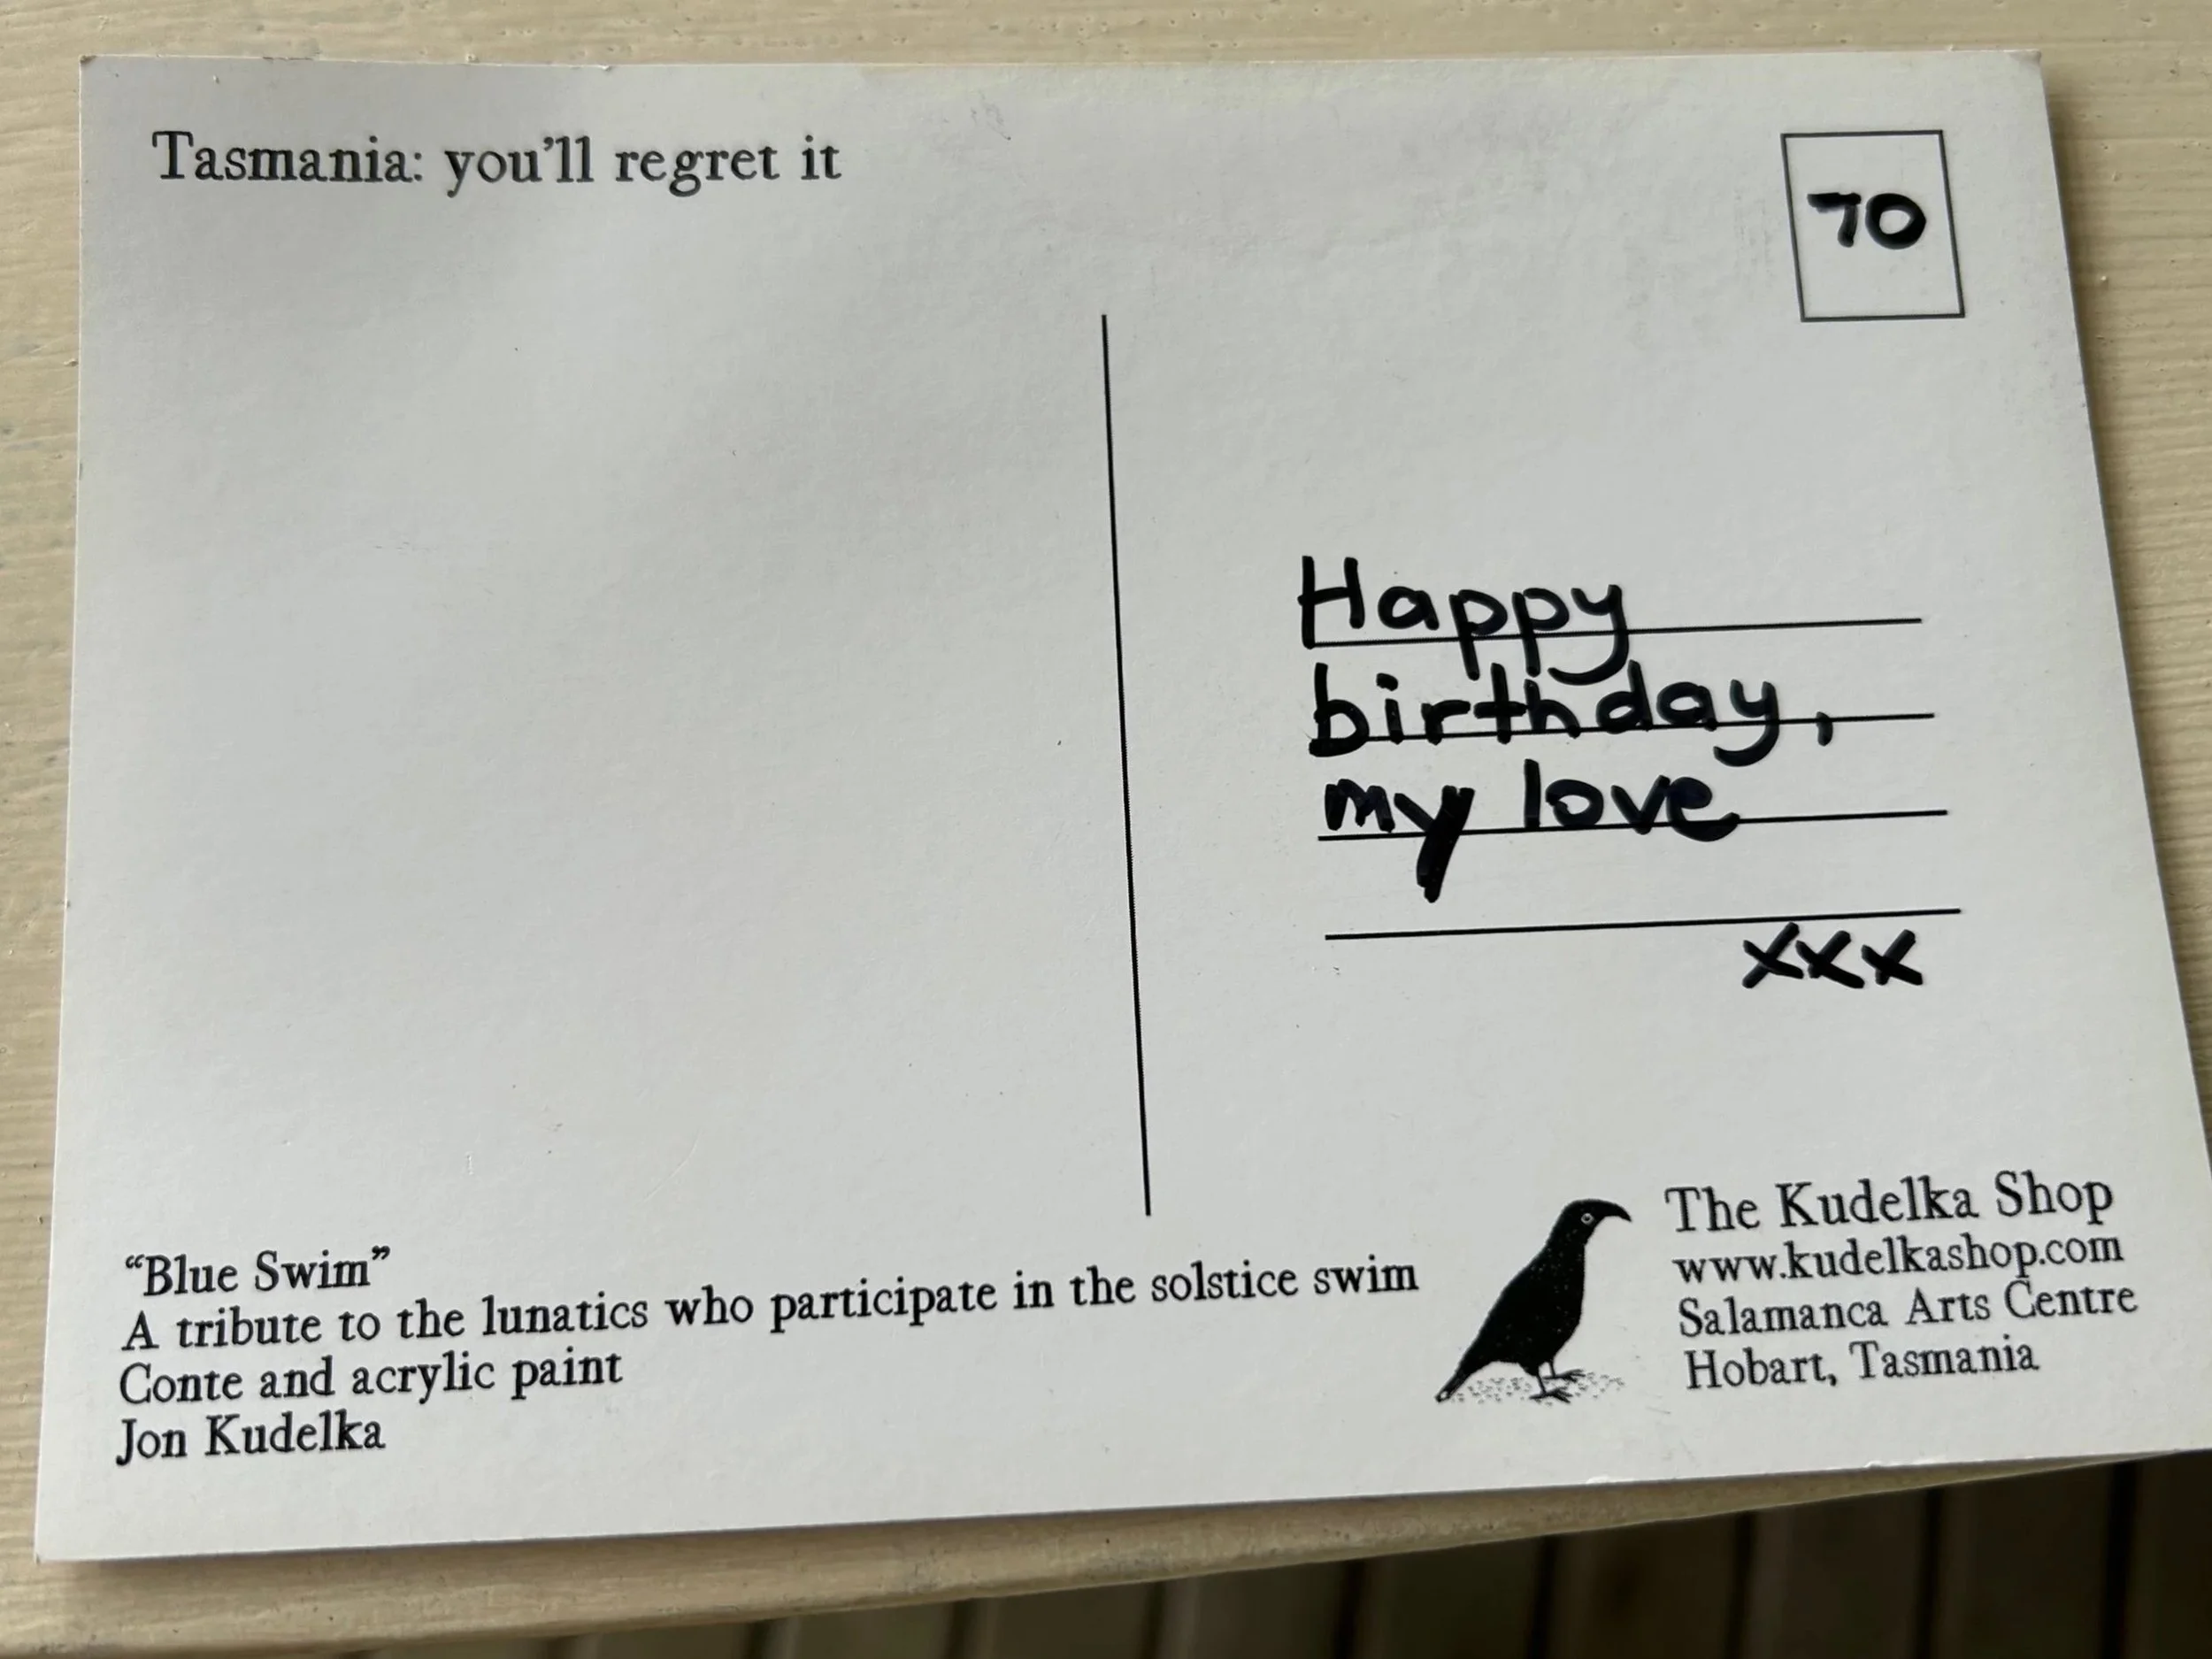 Tasmania: you'll regret it
70
Happy
birthday,
my love
xxx
“Blue Swim”
A tribute to the lunatics who participate in the solstice swim
Conte and acrylic paint
Jon Kudelka
The Kudelka Shop
www.kudelkashop.com
Salamanca Arts Centre
Hobart, Tasmania